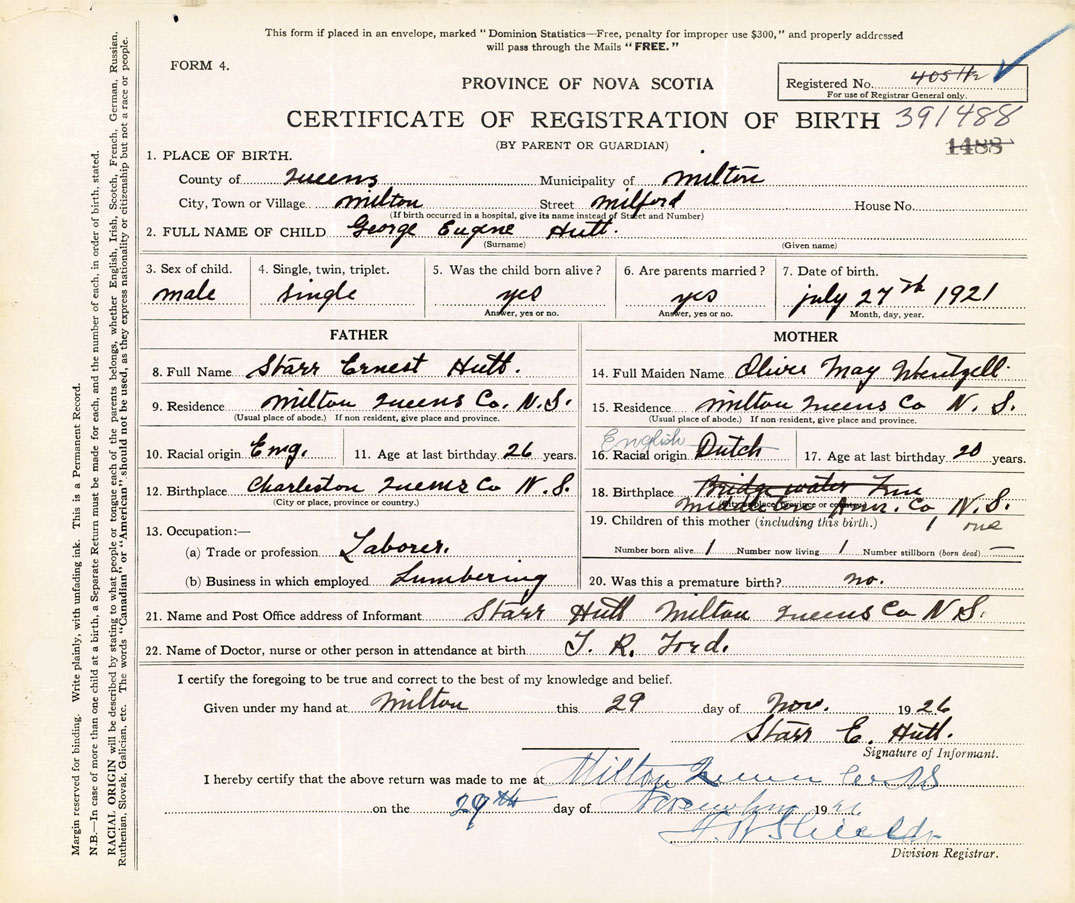 This form if placed in an envelope, marked "Dominion Statistics—Free, penalty for improper use $300," and properly addressed
will pass through the Mails "FREE."
FORM 4.
PROVINCE OF NOVA SCOTIA
Registered No. 405 H2
For use of Registrar General only.
CERTIFICATE OF REGISTRATION OF BIRTH 391488
(BY PARENT OR GUARDIAN)
1488
1. PLACE OF BIRTH.
County of Queens Municipality of Milton
City, Town or Village Milton Street Milford House No.
(If birth occurred in a hospital, give its name instead of Street and Number)
2. FULL NAME OF CHILD George Eugene Hutt.
(Surname) (Given name)
3. Sex of child. 4. Single, twin, triplet. 5. Was the child born alive? 6. Are parents married? 7. Date of birth.
male single yes yes July 27th 1921
Answer, yes or no. Answer, yes or no. Month, day, year.
FATHER
8. Full Name Starr Ernest Hutt.
9. Residence Milton Queens Co. N.S.
(Usual place of abode.) If non resident, give place and province.
10. Racial origin Eng. 11. Age at last birthday 26 years.
12. Birthplace Charleston Queens Co N.S.
(City or place, province or country.)
13. Occupation:—
(a) Trade or profession Laborer.
(b) Business in which employed Lumbering
MOTHER
14. Full Maiden Name Olive May Wentzell.
15. Residence Milton Queens Co N.S.
(Usual place of abode.) If non-resident, give place and province.
English
16. Racial origin Dutch 17. Age at last birthday 20 years.
18. Birthplace Bridgewater
Middleton Ann. Co N.S.
19. Children of this mother (including this birth.) 1 one
Number born alive 1 Number now living 1 Number stillborn (born dead) —
20. Was this a premature birth? no.
21. Name and Post Office address of Informant Starr Hutt Milton Queens Co N.S.
22. Name of Doctor, nurse or other person in attendance at birth T. R. Ford.
I certify the foregoing to be true and correct to the best of my knowledge and belief.
Given under my hand at Milton this 29 day of Nov. 1926
Starr E. Hutt.
Signature of Informant.
I hereby certify that the above return was made to me at Milton Queens Co NS
on the 29th day of November 1926
Division Registrar.
Margin reserved for binding. Write plainly, with unfading ink. This is a Permanent Record.
N.B.—In case of more than one child at a birth, a Separate Return must be made for each, and the number of each, in order of birth, stated.
RACIAL ORIGIN will be described by stating to what people or tongue each of the parents belongs, whether English, Irish, Scotch, French, German, Russian,
Ruthenian, Slovak, Galician, etc. The words "Canadian" or "American" should not be used, as they express nationality or citizenship but not a race or people.